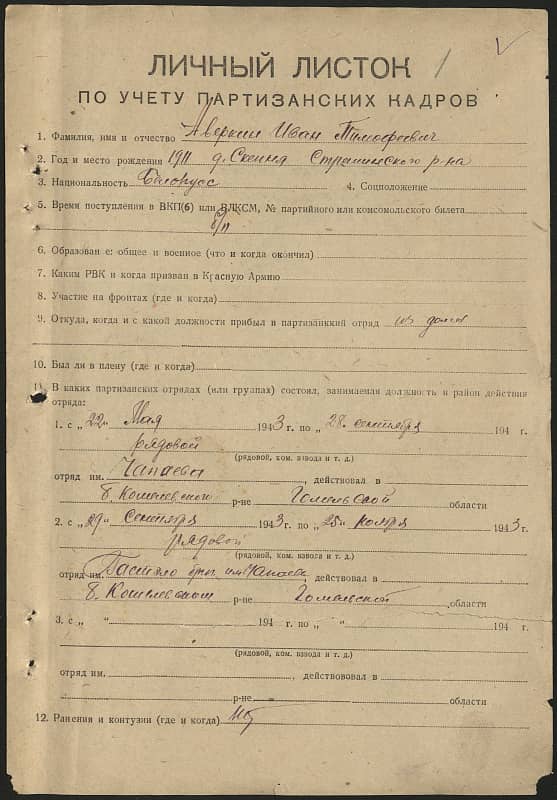 ЛИЧНЫЙ ЛИСТОК 1
ПО УЧЕТУ ПАРТИЗАНСКИХ КАДРОВ
1. Фамилия, имя и отчество Аверкин Иван Тимофеевич
2. Год и место рождения 1911 д. Стрешинского р-на
3. Национальность белорусс 4. Соцположение
5. Время поступления в ВКП(б) или ВЛКСМ, № партийного или комсомольского билета
б/п
6. Образован е: общее и военное (что и когда окончил)
7. Каким РВК и когда призван в Красную Армию
8. Участие на фронтах (где и когда)
9. Откуда, когда и с какой должности прибыл в партизанкий отряд из дома
10. Был ли в плену (где и когда)
11. В каких партизанских отрядах (или группах) состоял, занимаемая должность и район действия
отряда:
1. с „22“ Мая 1943 г. по „28“ сентября 194 г.
рядовой
(рядовой, ком. взвода и т. д.)
отряд им. Чапаева, действовал в
б. Кошелевском р-не Гомельской области
2. с „29“ Сентября 1943 г. по „25“ ноября 1943 г.
рядовой
(рядовой, ком. взвода и т. д.)
отряд им. Гастело бриг. им. Чапаева, действовал в
б. Кошелевском р-не Гомельской области
3. с „ “ 194 г. по „ “ 194 г.
(рядовой, ком. взвода и т. д.)
отряд им. , действововал в
р-не области
12. Ранения и контузии (где и когда) нет